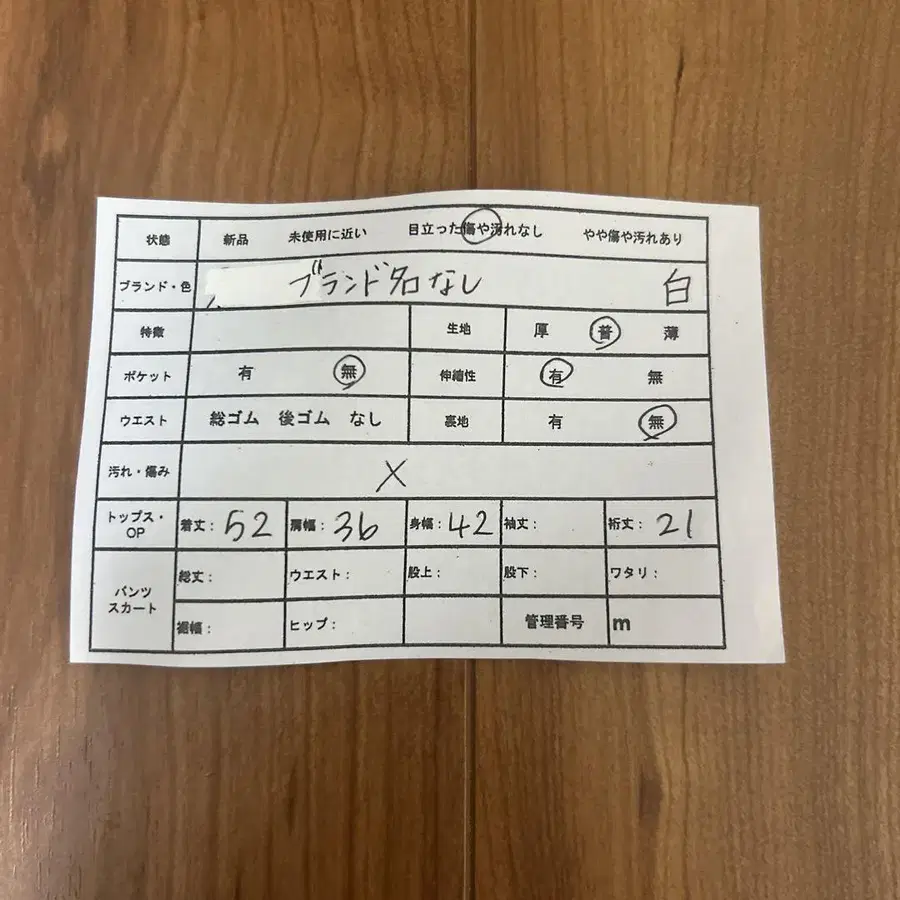 状態 新品 未使用に近い 目立った傷や汚れなし やや傷や汚れあり
ブランド・色 ブランド名なし 白
特徴 生地 厚 普 薄
ポケット 有 無 伸縮性 有 無
ウエスト 総ゴム 後ゴム なし 裏地 有 無
汚れ・傷み ×
トップス・OP 着丈: 52 肩幅: 36 身幅: 42 袖丈: 裄丈: 21
パンツ スカート 総丈: ウエスト: 股上: 股下: ワタリ:
裾幅: ヒップ: 管理番号 m